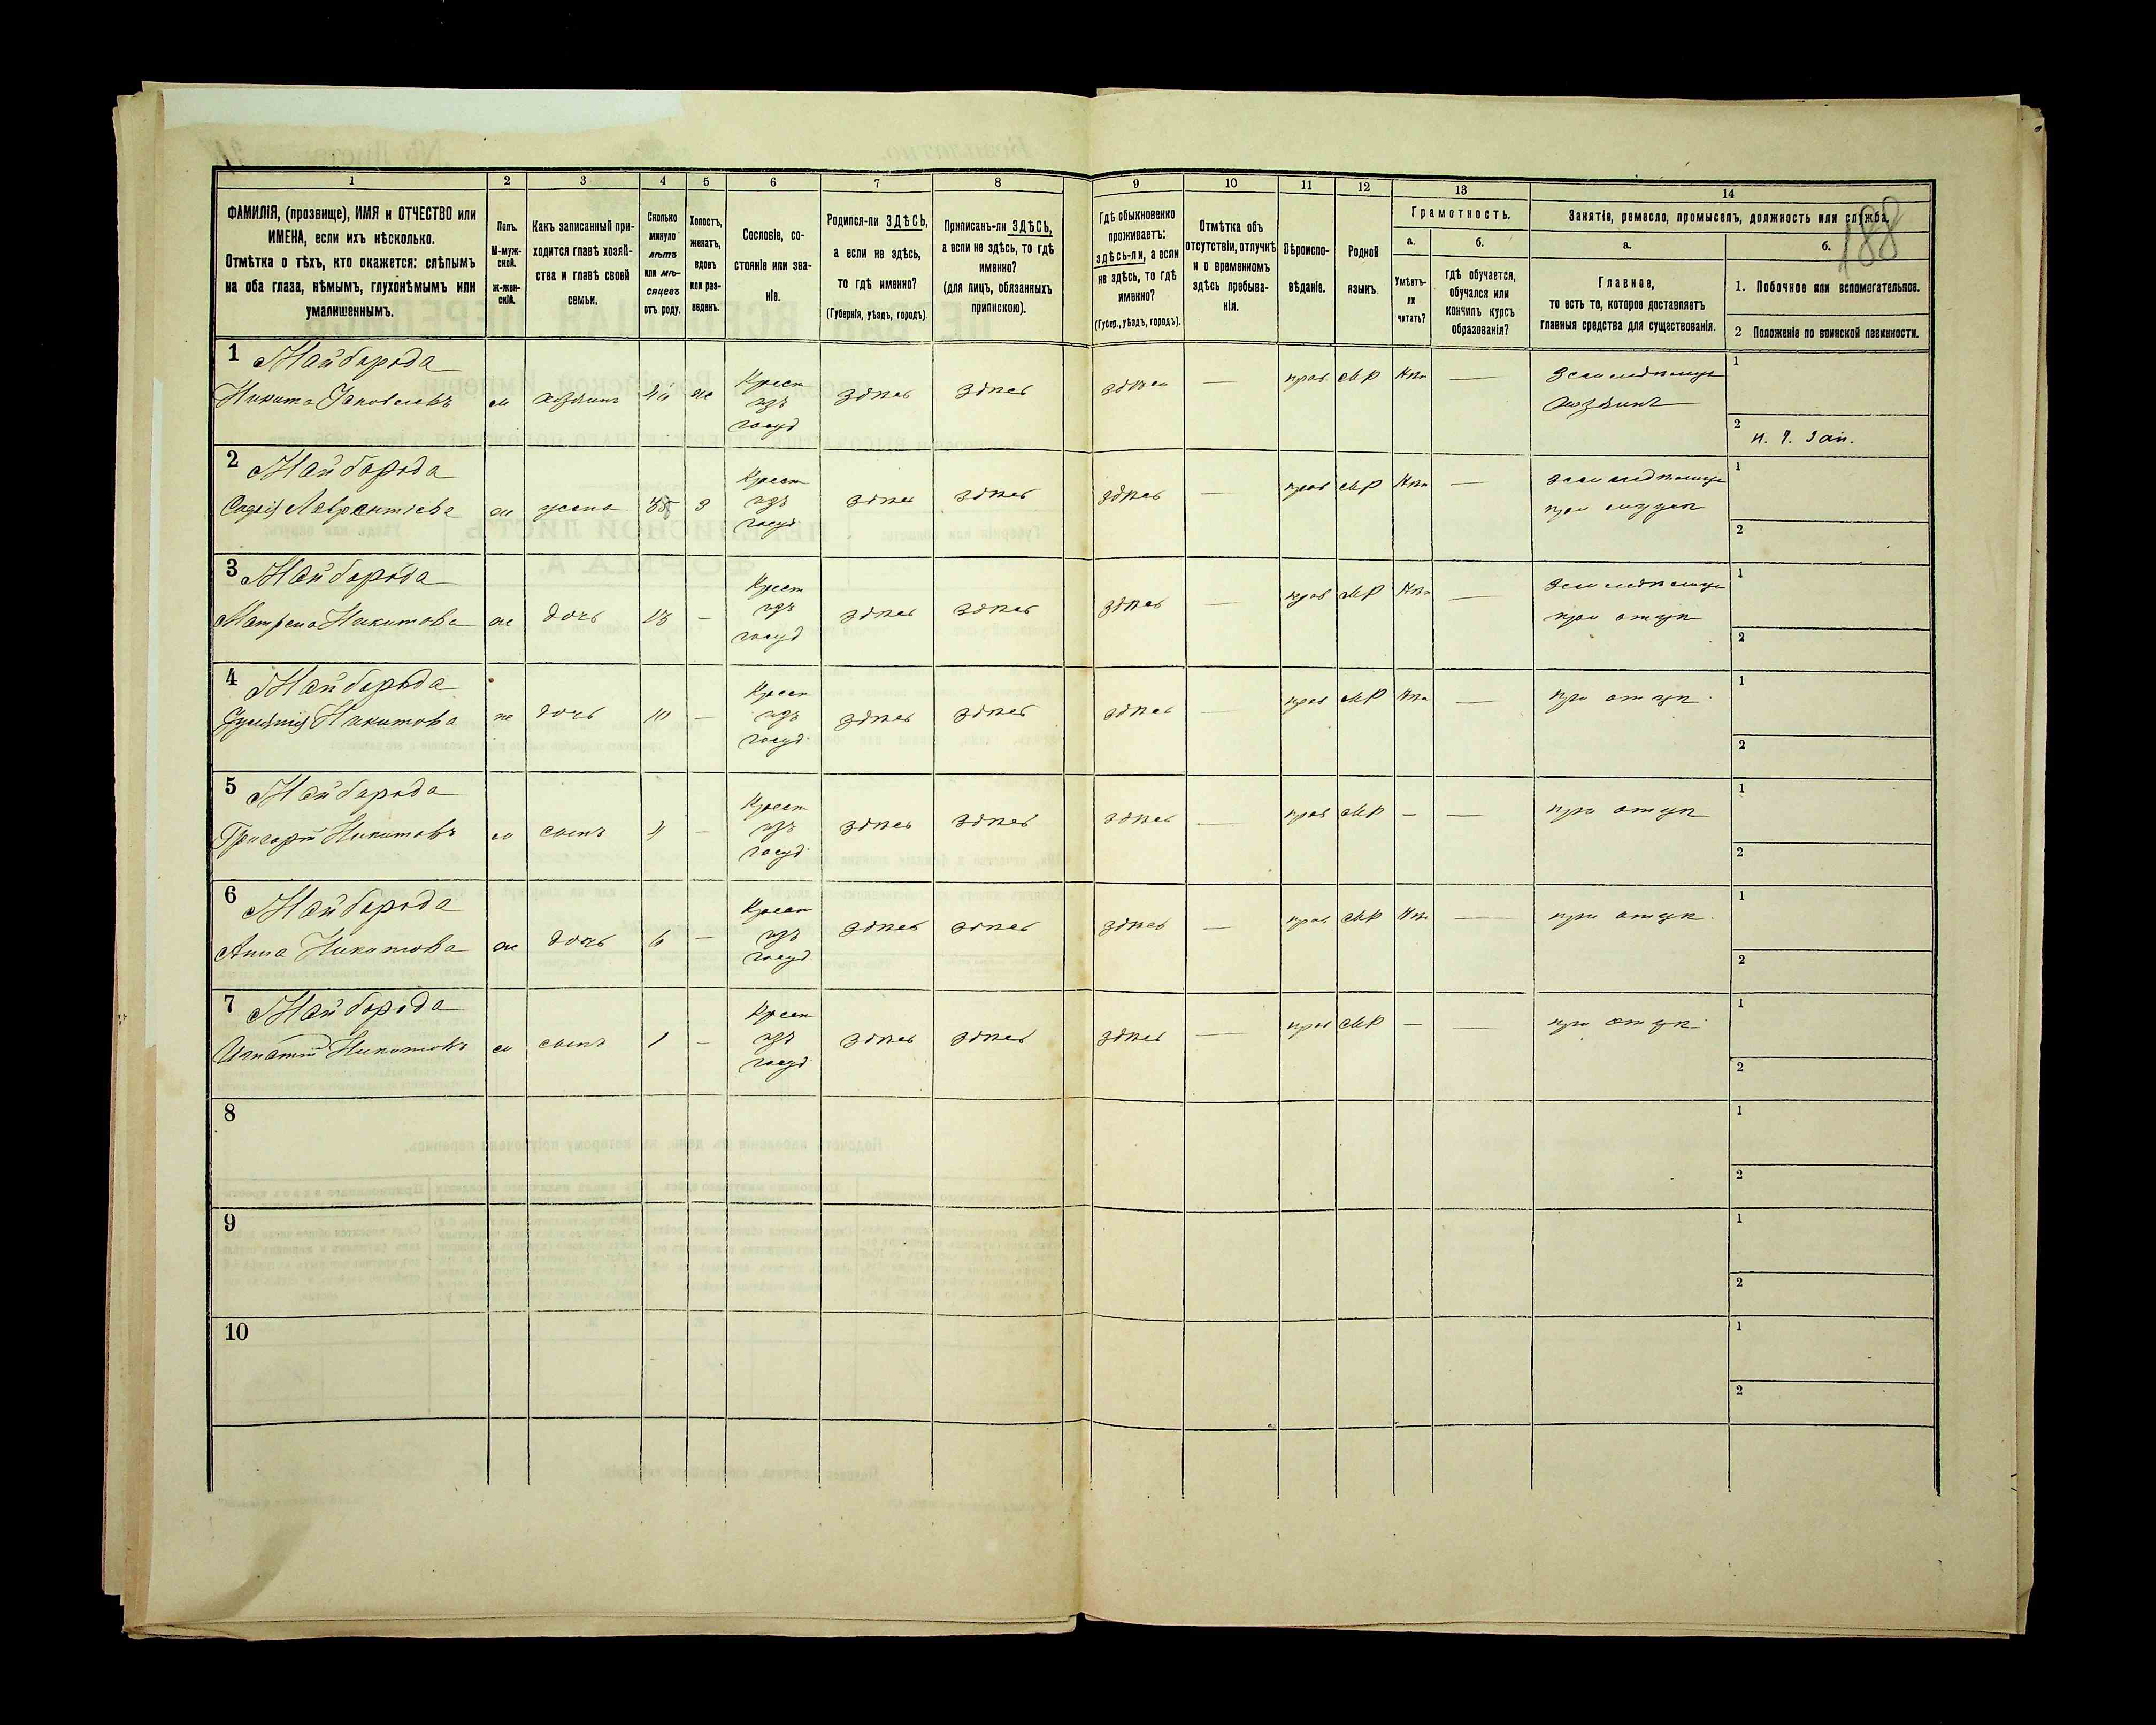 188
1
2
3
4
5
6
7
8
9
10
11
12
13
14
ФАМИЛІЯ, (прозвище), ИМЯ и ОТЧЕСТВО или
ИМЕНА, если ихъ нѣсколько.
Отмѣтка о тѣхъ, кто окажется: слѣпымъ
на оба глаза, нѣмымъ, глухонѣмымъ или
умалишеннымъ.
Полъ.
М-муж-
ской.
ж-жен-
скій.
Какъ записанный при-
ходится главѣ хозяй-
ства и главѣ своей
семьи.
Сколько
минуло
лѣтъ
или мѣ-
сяцевъ
отъ роду.
Холостъ,
женатъ,
вдовъ
или раз-
веденъ.
Сословіе, со-
стояніе или зва-
ніе.
Родился-ли ЗДѢСЬ,
а если не здѣсь,
то гдѣ именно?
(Губернія, уѣздъ, городъ).
Приписанъ-ли ЗДѢСЬ,
а если не здѣсь, то гдѣ
именно?
(для лицъ, обязанныхъ
припискою).
Гдѣ обыкновенно
проживаетъ:
здѣсь-ли, а если
не здѣсь, то гдѣ
именно?
(Губер., уѣздъ, городъ).
Отмѣтка объ
отсутствіи, отлучкѣ
и о временномъ
здѣсь пребыва-
ніи.
Вѣроиспо-
вѣданіе.
Родной
языкъ.
Грамотность.
а.
Умѣетъ-
ли
читать?
б.
гдѣ обучается,
обучался или
кончилъ курсъ
образованія?
Занятія, ремесло, промыселъ, должность или служба.
а.
Главное,
то есть то, которое доставляетъ
главныя средства для существованія.
б.
1. Побочное или вспомогательное.
2 Положеніе по воинской повинности.
1 Майборода
Никита Яковлевъ м хозяинъ 40 ж Крест изъ госуд здѣсь здѣсь здѣсь — прав МР Нѣт —
хозяинъ
1
2
2 Майборода
Лаврентіева ж жена 35 З Крест изъ госуд здѣсь здѣсь здѣсь — прав МР Нѣт —
при мужѣ
1
2
3 Майборода
Матрена Никитова ж дочь 13 — Крест изъ госуд здѣсь здѣсь здѣсь — прав МР Нѣт —
при отцѣ
1
2
4 Майборода
Никитова ж дочь 10 — Крест изъ госуд здѣсь здѣсь здѣсь — прав МР Нѣт — при отцѣ
1
2
5 Майборода
Григорій Никитовъ м сынъ — Крест изъ госуд здѣсь здѣсь здѣсь — прав МР — — при отцѣ
1
2
6 Майборода
Анна Никитова ж дочь 6 — Крест изъ госуд здѣсь здѣсь здѣсь — прав МР Нѣт — при отцѣ
1
2
7 Майборода
Игнатій Никитовъ м сынъ 1 — Крест изъ госуд здѣсь здѣсь здѣсь — прав МР — — при отцѣ
1
2
8
1
2
9
1
2
10
1
2